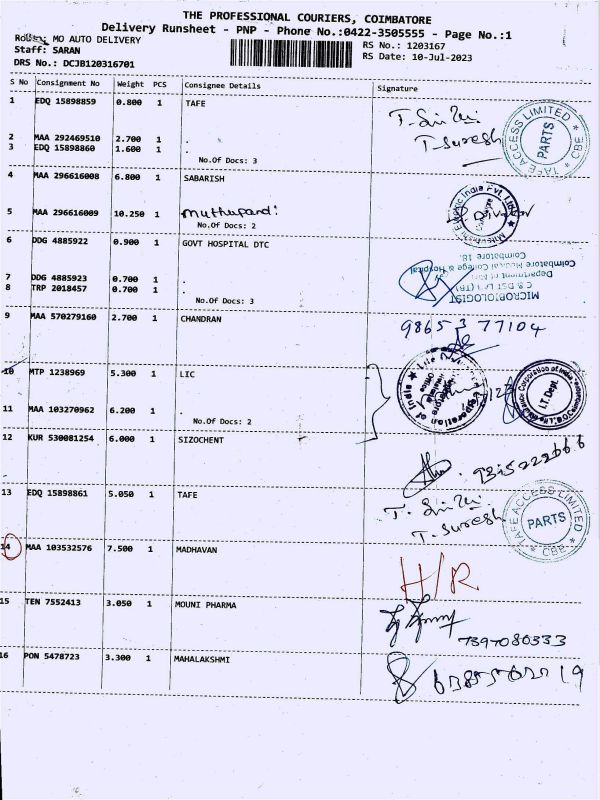 THE PROFESSIONAL COURIERS, COIMBATORE
Delivery Runsheet - PNP - Phone No.:0422-3505555 - Page No.:1
MO AUTO DELIVERY
RS No.: 1203167
Staff: SARAN
RS Date: 10-Jul-2023
DRS No.: DCJB120316701
S No Consignment No Weight PCS Consignee Details Signature
1 EDQ 15898859 0.800 1 TAFE
TAFE ACCESS LIMITED * CBE *
PARTS
T. Suresh
2 MAA 292469510 2.700 1 .
3 EDQ 15898860 1.600 1 .
No.Of Docs: 3
4 MAA 296616008 6.800 1 SABARISH
Mitsubishi Electric India Pvt. Ltd.
5 MAA 296616009 10.250 1 muthupandi
No.Of Docs: 2
6 DDG 4885922 0.900 1 GOVT HOSPITAL DTC
7 DDG 4885923 0.700 1 .
8 TRP 2018457 0.700 1 .
No.Of Docs: 3
MICROBIOLOGIST
Coimbatore Medical College & Hospital
Coimbatore 18.
9 MAA 570279160 2.700 1 CHANDRAN
98653 77104
10 MTP 1238969 5.300 1 LIC
I.T. Dept.
11 MAA 103270962 6.200 1 .
No.Of Docs: 2
12 KUR 530081254 6.000 1 SIZOCHENT
13 EDQ 15898861 5.050 1 TAFE
T. Suresh
TAFE ACCESS LIMITED * CBE *
PARTS
14 MAA 103532576 7.500 1 MADHAVAN
H/R
15 TEN 7552413 3.050 1 MOUNI PHARMA
7397080333
16 PON 5478723 3.300 1 MAHALAKSHMI